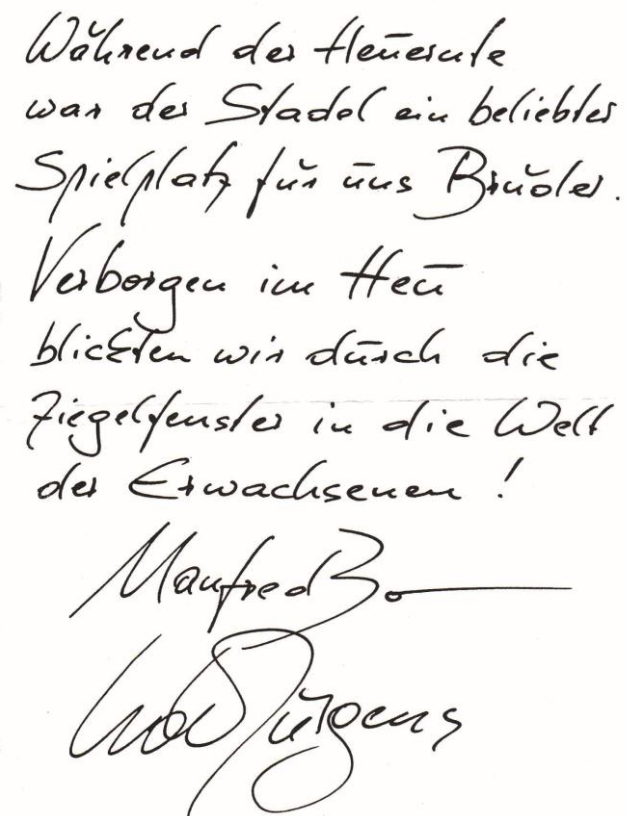 Während der Heuernte
war der Stadel ein beliebter
Spielplatz für uns Brüder.
Verborgen im Heu
blickten wir durch die
Ziegelfenster in die Welt
der Erwachsenen!
Manfred Bo
Udo Jürgens